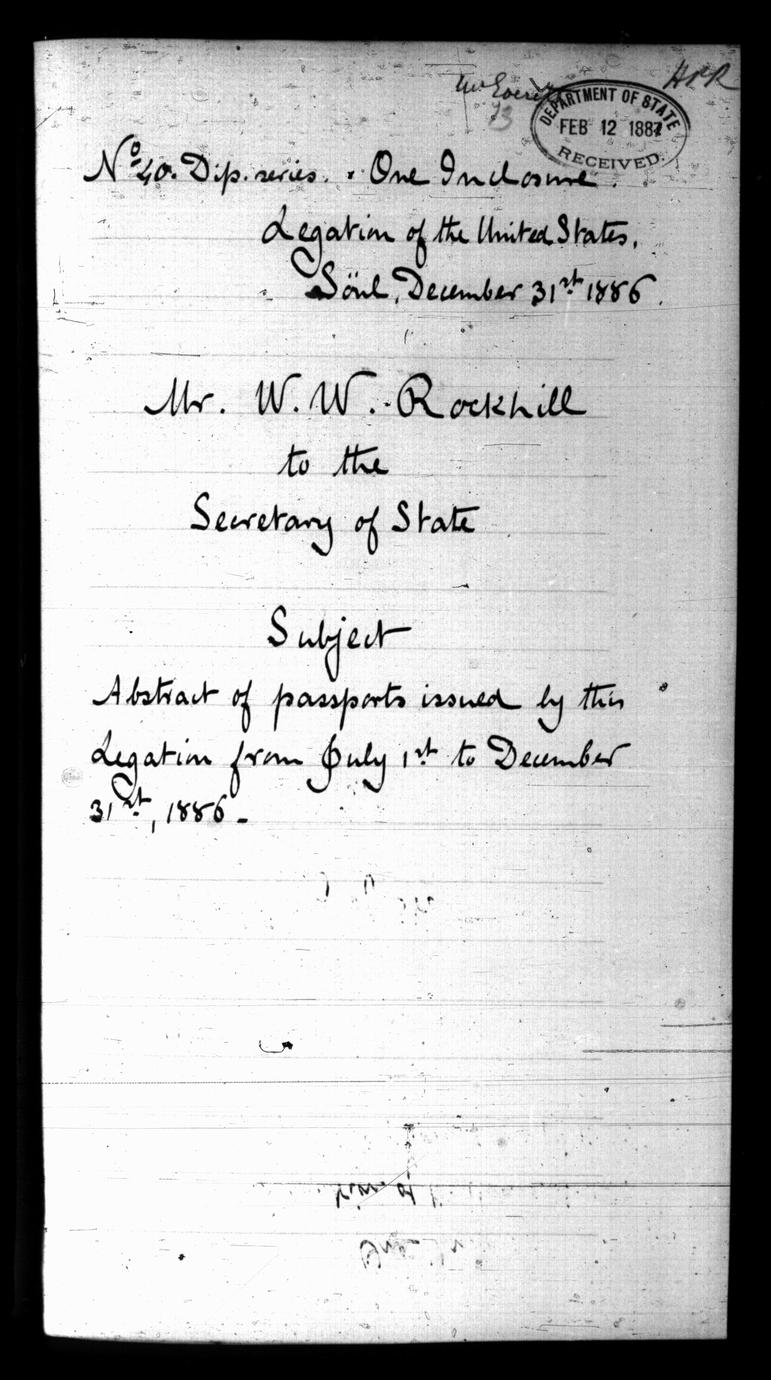 HRR
DEPARTMENT OF STATE
FEB 12 1887
RECEIVED.
Nº 40. Dip. series. One Inclosure.
Legation of the United States,
Söul, December 31st 1886.
Mr. W. W. Rockhill
to the
Secretary of State
Subject
Abstract of passports issued by this
Legation from July 1st to December
31st, 1886_